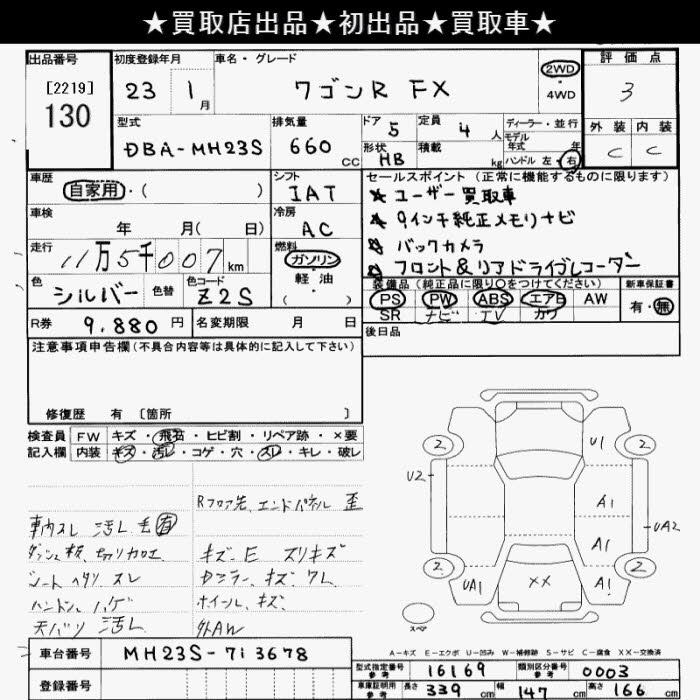 ★買取店出品★初出品★買取車★
出品番号
[2219]
130
初度登録年月
23 1月
車名・グレード
ワゴンR FX
2WD
・
4WD
評価点
3
外装 内装
C C
型式
DBA-MH23S
排気量
660 cc
ドア 5
定員 4 人
形状 HB
積載 kg
ディーラー・並行
モデル年式 年
ハンドル 左・右
車歴
自家用・( )
シフト
IAT
セールスポイント (正常に機能するものに限ります)
★ ユーザー買取車
★ 9インチ純正メモリナビ
★ バックカメラ
★ フロント&リアドライブレコーダー
車検
年 月( 日)
冷房
AC
走行
11万5千007km
燃料
ガソリン
・
軽油
( )
色
シルバー
色替
色コード
Z2S
装備品 (純正品に限り○をつけてください)
PS PW ABS エアB AW
SR ナビ TV カワ
新車保証書
有・無
R券 9,880 円
名変期限 月 日
後日品
注意事項申告欄(不具合内容等は具体的に記入して下さい)
修復歴 有 〔箇所 〕
検査員記入欄
FW キズ・飛石・ヒビ割・リペア跡・×要
内装 キズ・汚レ・コゲ・穴・スレ・キレ・破レ
Rフロア先、エンドパネル 歪
車内スレ 汚レ
ダッシュ板、切リ加工
シートヘタリ スレ
ハンドル ハゲ
天バリ 汚レ
キズ・E スリキズ
ホイール、キズ、
外AW
2
2
2
2
U1
U2
A1
A1
UA2
UA1
A1
××
スペア
A-キズ E-エクボ U-凹み W-補修跡 S-サビ C-腐食 XX-交換済
車台番号 MH23S-713678
登録番号
型式指定番号 参考 16169
類別区分番号 参考 0003
車庫証明用 参考 長さ 339 cm 幅 147 cm 高さ 166 cm